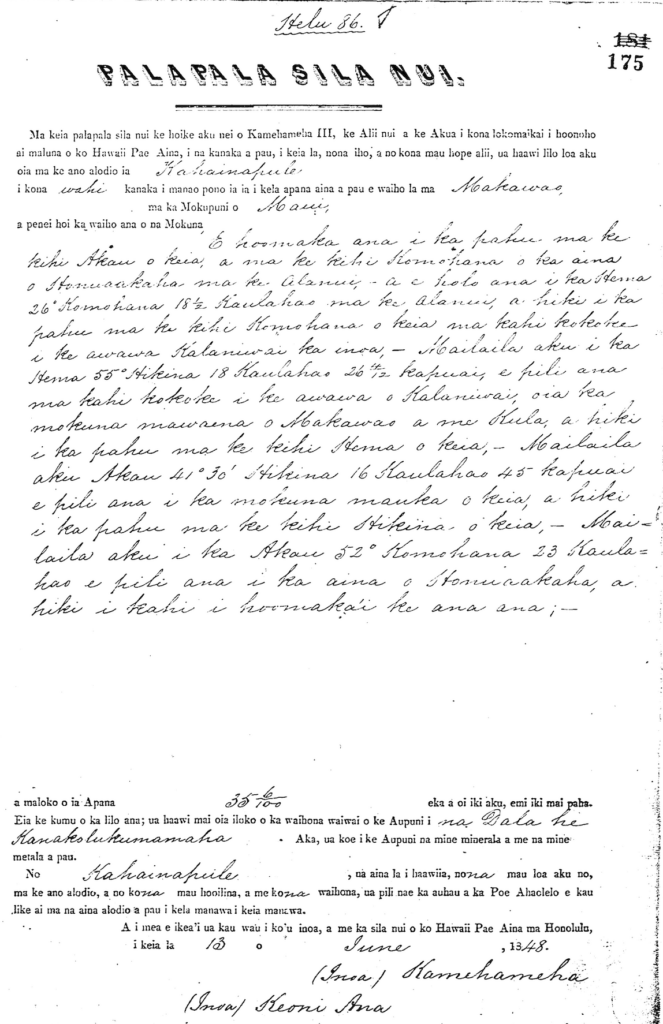 Helu 86.
181
175
PALAPALA SILA NUI.
Ma keia palapala sila nui ke hoike aku nei o Kamehameha III, ke Alii nui a ke Akua i kona lokomaikai i hoonoho
ai maluna o ko Hawaii Pae Aina, i na kanaka a pau, i keia la, nona iho, a no kona mau hope alii, ua haawi lilo loa aku
oia ma ke ano alodio ia Kahainapule
i kona wahi kanaka i manao pono ia ia i kela apana aina a pau e waiho la ma Makawao,
ma ka Mokupuni o Maui,
a penei hoi ka waiho ana o na Mokuna
E hoomaka ana i ka pahu ma ke
kihi Akau o keia, a ma ke kihi Komohana o ka aina
o Honuaakaha ma ke Alanui, - a e holo ana i ka Hema
26° Komohana 18½ Kaulahao ma ke Alanui, a hiki i ka
pahu ma ke kihi Komohana o keia ma kahi kokoke
i ke awawa Kalaniwai ka inoa, - Mailaila aku i ka
Hema 55° Hikina 18 Kaulahao 26 4/12 kapuai, e pili ana
ma kahi kokoke i ke awawa o Kalaniwai, oia ka
mokuna mawaena o Makawao a me Kula, a hiki
i ka pahu ma ke kihi Hema o keia, - Mailaila
aku Akau 41° 30' Hikina 16 Kaulahao 45 kapuai
e pili ana i ka mokuna mauka o keia, a hiki
i ka pahu ma ke kihi Hikina o keia, - Mai=
laila aku i ka Akau 52° Komohana 23 Kaula-
hao e pili ana i ka aina o Honuaakaha, a
hiki i kahi i hoomaka'i ke ana ana; -
a maloko o ia Apana 35 6/100 eka a oi iki aku, emi iki mai paha.
Eia ke kumu o ka lilo ana; ua haawi mai oia iloko o ka waihona waiwai o ke Aupuni i na Dala he
Kanakolukumamaha . Aka, ua koe i ke Aupuni na mine minerala a me na mine
metala a pau.
No Kahainapule , na aina la i haawiia, nona mau loa aku no,
ma ke ano alodio, a no kona mau hooilina, a me kona waihona, ua pili nae ka auhau a ka Poe Ahaolelo e kau
like ai ma na aina alodio a pau i kela manawa i keia manawa.
A i mea e ikea'i ua kau wau i ko'u inoa, a me ka sila nui o ko Hawaii Pae Aina ma Honolulu,
i keia la 13 o June , 1848.
(Inoa) Kamehameha
(Inoa) Keoni Ana